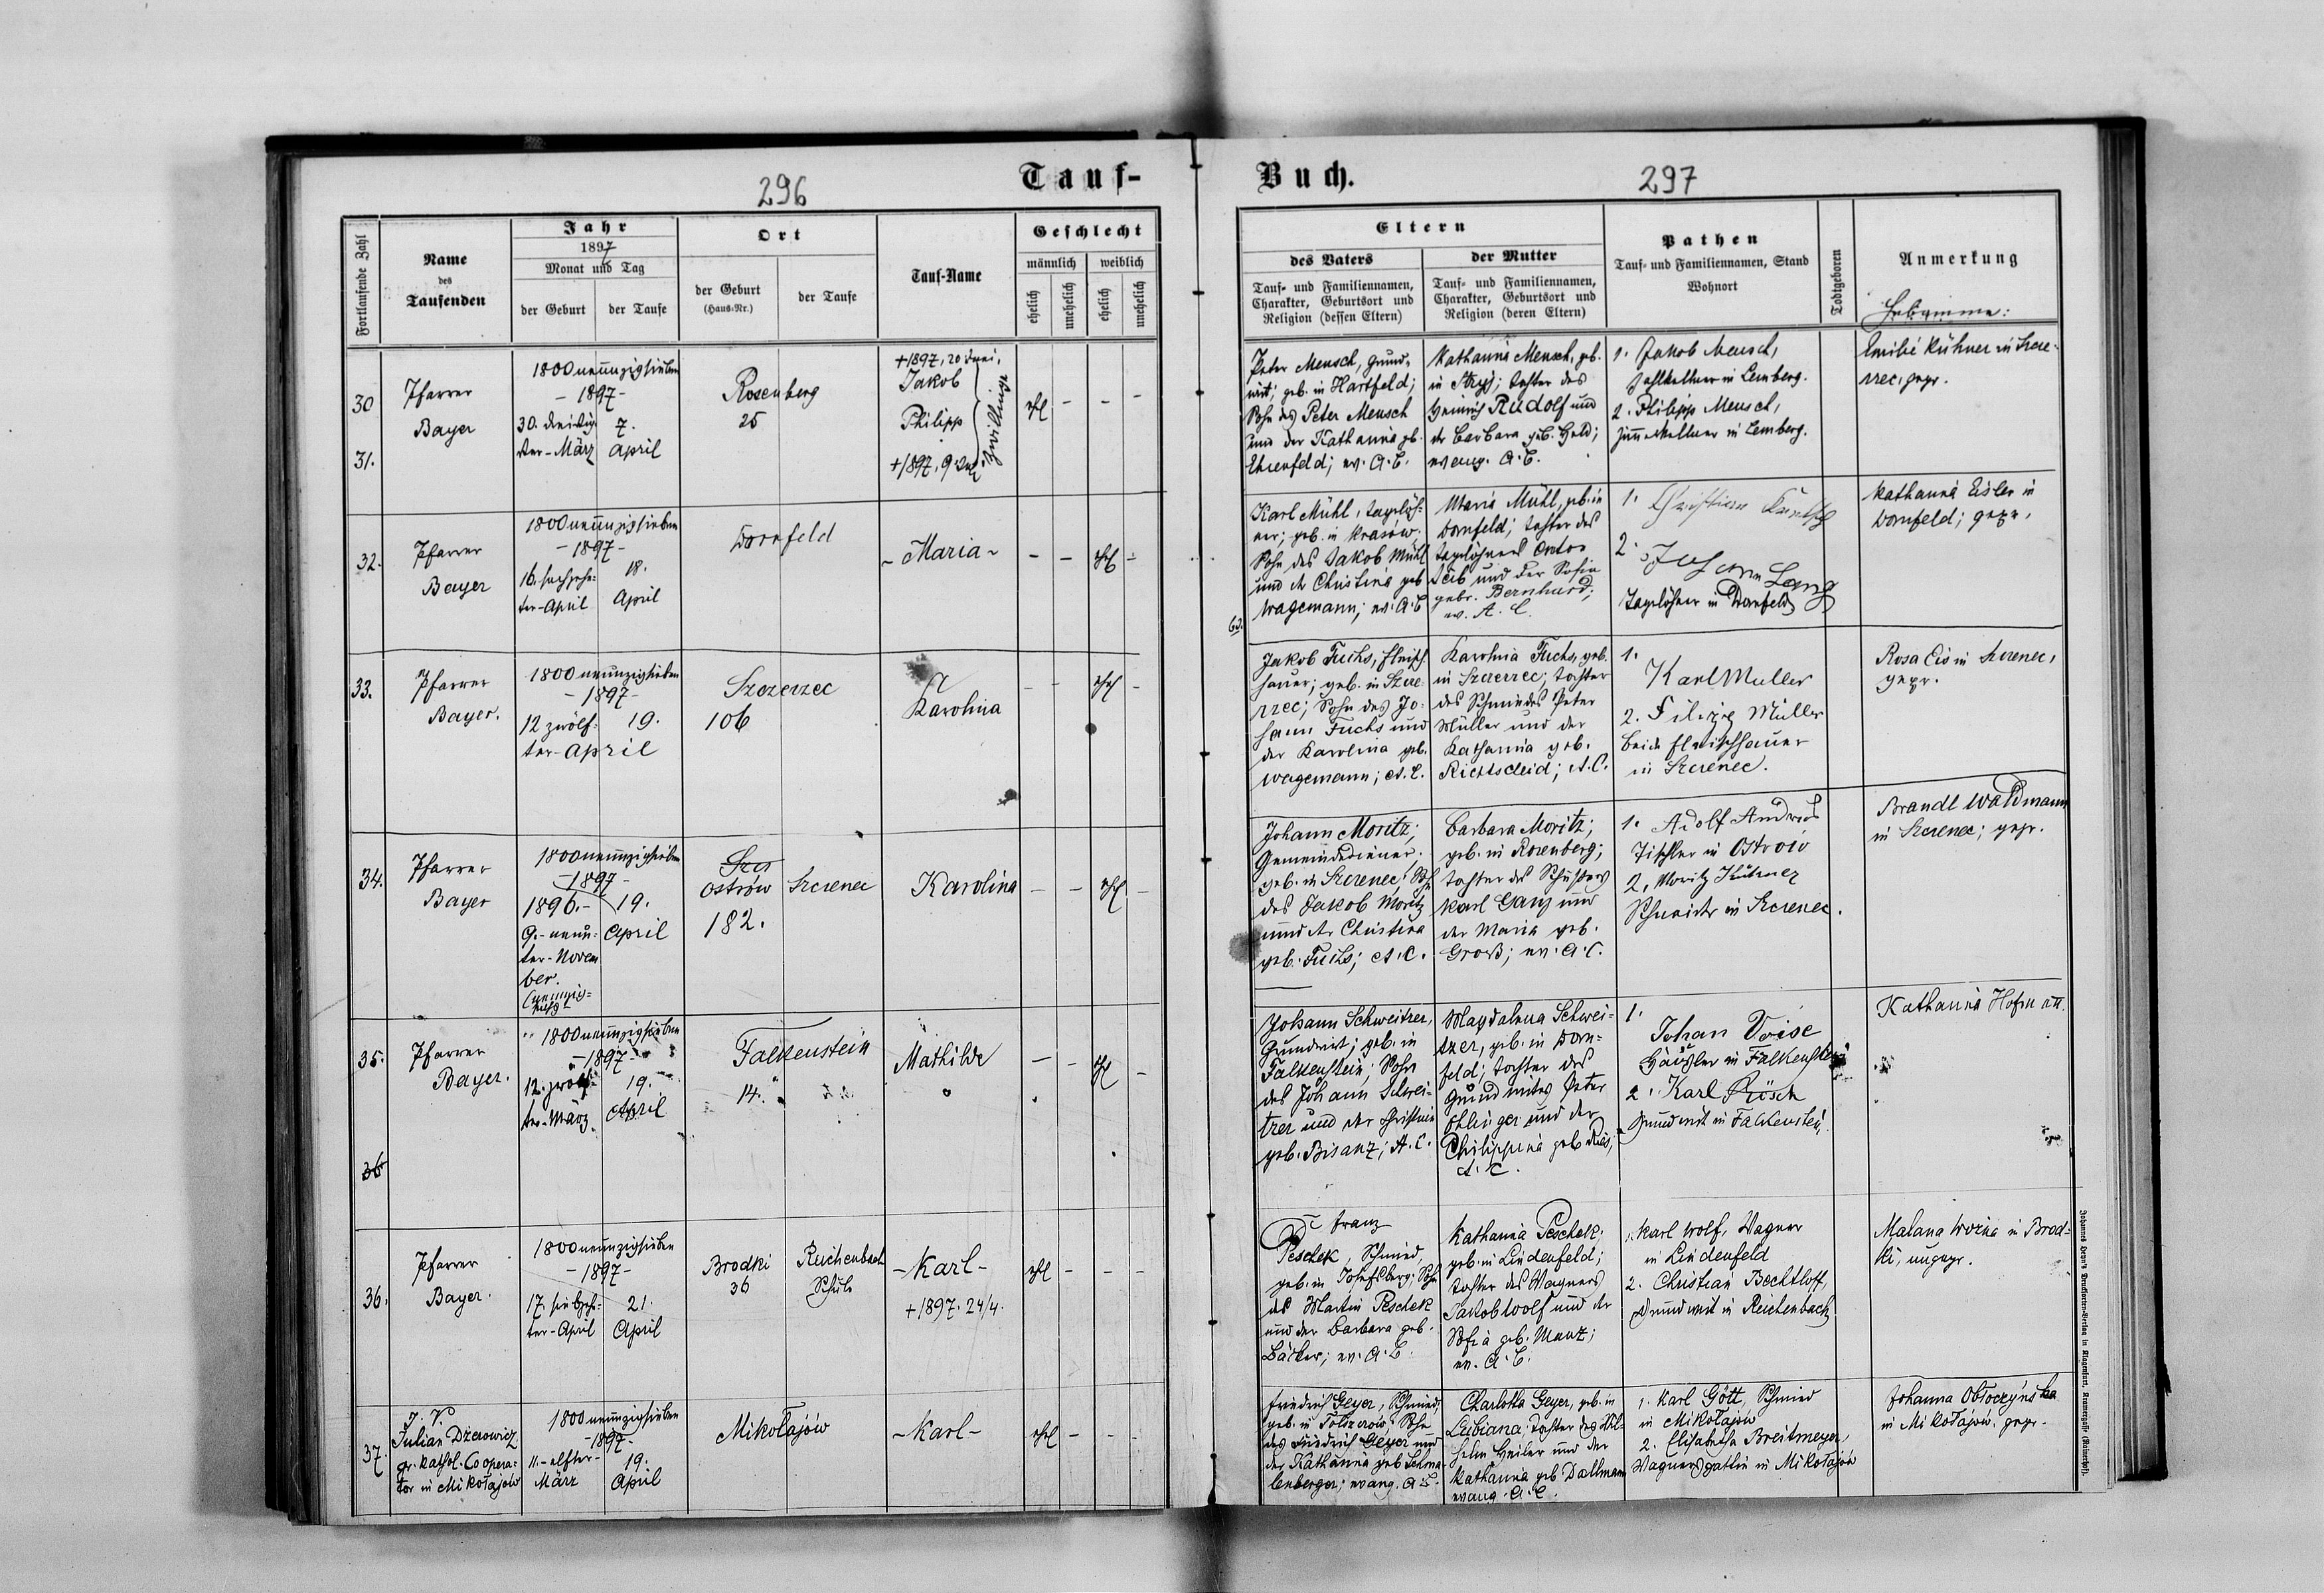 296
Tauf-
Fortlaufende Zahl
Name
des
Taufenden
Jahr
1897
Monat und Tag
der Geburt
der Taufe
Ort
der Geburt
(Haus-Nr.)
der Taufe
Tauf-Name
Geschlecht
männlich
weiblich
ehelich
unehelich
ehelich
unehelich
30
31.
Pfarrer
Bayer
1800 neunzigsieben
- 1897 -
30. dreißig-
ster - März
7.
April
Rosenberg
25
+1897, 20 Juni,
Jakob
Philipp
Zwillinge
ehl
-
-
-
32.
Pfarrer
Bayer
1800 neunzigsieben
- 1897 -
16. sechzehn-
ter - April
18.
April
Dornfeld
- Maria -
-
-
ehl
-
33.
Pfarrer
Bayer.
1800 neunzigsieben
- 1897 -
12 zwölf-
ter - April
19.
Szczerzec
106
Karolina
-
-
ehl
-
34.
Pfarrer
Bayer
1800 neunzigsieben
- 1897 -
1896. -
9. - neun-
ter - Novem
ber.
19.
April
Ostrów
182.
Szczerzec
Karolina
-
-
ehl
-
35.
Pfarrer
Bayer.
1800 neunzigsieben
- 1897 -
12. zwölf-
ter - März
19.
April
Falkenstein
14.
Mathilde
-
ehl
-
36
36.
Pfarrer
Bayer.
1800 neunzigsieben
- 1897 -
17. siebzehn-
ter - April
21.
April
Brodki
36
Reichenbach
Schule
- Karl -
+1897. 24/4.
ehl
-
-
-
37.
I. V.
Julian Dżerowicz
gr. kathol. Coopera-
tor in Mikołajów
1800 neunzigsieben
- 1897 -
11. - elfter -
März
19.
April
Mikołajów
- Karl -
ehl
-
-
-
Buch.
297
Eltern
des Vaters
Tauf- und Familiennamen,
Charakter, Geburtsort und
Religion (dessen Eltern)
der Mutter
Tauf- und Familiennamen,
Charakter, Geburtsort und
Religion (deren Eltern)
Pathen
Tauf- und Familiennamen, Stand
Wohnort
Todtgeboren
Anmerkung
Hebamme:
Peter Mensch, Grund-
wirt, geb. in Hartfeld;
Sohn des Peter Mensch
und der Katharina geb.
Ehrenfeld; ev. A. C.
Katharina Mensch, geb.
in Stryj; Tochter des
Heinrich Rudolf und
der Barbara geb. Held;
evang. A. C.
1. Jakob Mensch,
Zahlkellner in Lemberg.
2. Philipp Mensch,
Zimmerkellner in Lemberg.
Emilie Kühner in Szcze-
rzec, gepr.
Karl Mühl, Taglöh-
ner; geb. in Krasów,
Sohn des Jakob Mühl
und der Christina geb.
Wagemann; ev. A. C.
Maria Mühl, geb. in
Dornfeld; Tochter des
Taglöhners Anton
und der Sofia
gebr. Bernhard;
ev. A. C.
1. Christian
2. Johann Lang
Taglöhner in Dornfeld
Katharina Eisler in
Dornfeld; gepr.
Jakob Fuchs, Fleisch-
hauer; geb. in Szcze-
rzec; Sohn des Jo-
hann Fuchs und
der Karolina geb.
Wagemann; A. C.
Karolina Fuchs, geb.
in Szczerzec; Tochter
des Schmiedes Peter
Müller und der
Katharina geb.
Richtscheid; A. C.
1.
Karl Muller
2. Filipp Müller
beide Fleischhauer
in Szczerzec.
Rosa Eis in Szczerzec,
gepr.
Johann Moritz;
Gemeindediener,
geb. in Szczerzec; Sohn
des Jakob Moritz
und der Christina
geb. Fuchs; A. C.
Barbara Moritz;
geb. in Rosenberg;
Tochter des Schusters
Karl Ganz und
der Maria geb.
Groß; ev. A. C.
1. Adolf Andres
Tischler in Ostrów
2. Moritz Kühner
Schneider in Szczerzec.
Brandl Waldmann
in Szczerzec; gepr.
Johann Schweitzer,
Grundwirt; geb. in
Falkenstein; Sohn
des Johann Schwei-
tzer und der Christina
geb. Bisanz; A. C.
Magdalena Schwei-
tzer, geb. in Dorn-
feld; Tochter des
Grundwirtes Peter
Ehlinger und der
Philippina geb.
A. C.
1.
Johan Voise
Häusler in Falkenstein
2. Karl Rösch
Grundwirt in Falkenstein
Katharina
Franz
Peschek, Schmied,
geb. in Josefsberg; Sohn
des Martin Peschek
und der Barbara geb.
Bäcker; ev. A. C.
Katharina Peschek;
geb. in Lindenfeld;
Tochter des Wagners
Jakob Wolf und der
Sofia geb. Manz;
ev. A. C.
1. Karl Wolf, Wagner
in Lindenfeld
2. Christian Bechtloff,
Grundwirt in Reichenbach
Malana Wozna in Brod-
ki, ungepr.
Friedrich Geyer, Schmied,
geb. in Tolszczów; Sohn
des Friedrich Geyer und
der Katharina geb. Schma-
lenberger; evang. A. C.
Charlotta Geyer, geb. in
Lubiana; Tochter des Wil-
helm Heiler und der
Katharina geb. Dallmann
evang. A. C.
1. Karl Gött, Schmied
in Mikołajów
2. Elisabetha Breitmeyer,
Wagnersgattin in Mikołajów
Johanna Obłoczyńska
in Mikołajów, gepr.
Johannes Heyn's Drucksorten-Verlag in Klagenfurt, Kramergasse (Rainerhof).